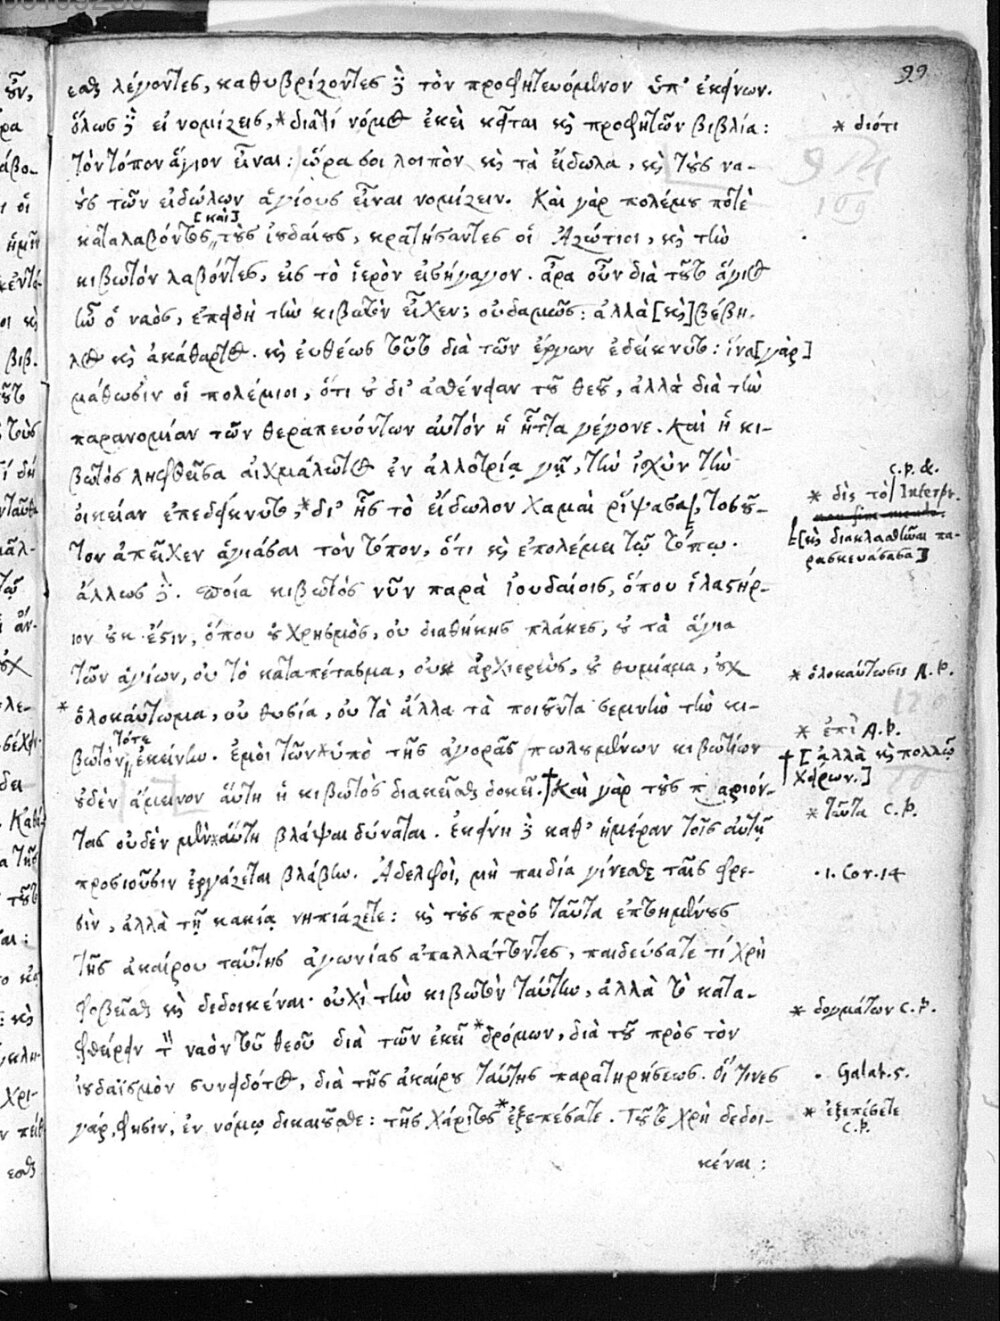 99
εσθαι λέγοντες, καθυβρίζοντες δὲ τὸν προφητευόμενον ὑπ' ἐκείνων.
ὅλως δὲ εἰ νομίζεις, * διατί νόμος ἐκεῖ κεῖται καὶ προφητῶν βιβλία:
* διότι
τὸν τόπον ἅγιον εἶναι: ὥρα σοι λοιπὸν καὶ τὰ εἴδωλα, καὶ τοὺς να-
οὺς τῶν εἰδώλων ἁγίους εἶναι νομίζειν. Καὶ γὰρ πολέμου ποτὲ
[καὶ]
καταλαβόντος, τοὺς ἰουδαίους, κρατήσαντες οἱ Ἀζώτιοι, καὶ τὴν
κιβωτὸν λαβόντες, εἰς τὸ ἱερὸν εἰσήγαγον. ἆρα οὖν διὰ τοῦτο ἅγιος
ἦν ὁ ναὸς, ἐπειδὴ τὴν κιβωτὸν εἶχεν; οὐδαμῶς: ἀλλὰ [καὶ] βέβη-
λος καὶ ἀκάθαρτος. καὶ εὐθέως τοῦτο διὰ τῶν ἔργων ἐδείκνυτο: ἵνα [γὰρ]
μάθωσιν οἱ πολέμιοι, ὅτι οὐ δι' ἀσθένειαν τοῦ θεοῦ, ἀλλὰ διὰ τὴν
παρανομίαν τῶν θεραπευόντων αὐτὸν ἡ ἧττα γέγονε. καὶ ἡ κι-
βωτὸς ληφθεῖσα αἰχμάλωτος ἐν ἀλλοτρίᾳ γῇ, τὴν ἰσχὺν τὴν
οἰκείαν ἐπεδείκνυτο, * δι' ἧς τὸ εἴδωλον χαμαὶ ῥίψασα, τοσοῦ-
* δὶς τὸ / Interpr.
τον ἀπεῖχεν ἁγιάσαι τὸν τόπον, ὅτι καὶ ἐπολέμει τῷ τόπῳ.
[καὶ διακλασθῆναι πα-
ρασκευάσασα]
ἄλλως δὲ. ποία κιβωτὸς νῦν παρὰ ἰουδαίοις, ὅπου ἱλαστήρ-
ιον οὐκ ἔστιν, ὅπου οὐ χρησμὸς, οὐ διαθήκης πλάκες, οὐ τὰ ἅγια
τῶν ἁγίων, οὐ τὸ καταπέτασμα, οὐκ ἀρχιερεὺς, οὐ θυμίαμα, οὐχ
* ὁλοκαύτωσις A. P.
* ὁλοκαύτωμα, οὐ θυσία, οὐ τὰ ἄλλα τὰ ποιοῦντα σεμνὴν τὴν κι-
τότε
βωτὸν, ἐκείνην. ἐμοὶ τῶν * ὑπὸ τῆς ἀγορᾶς πωλουμένων κιβωτίων
* ἐπὶ A. P.
οὐδὲν ἄμεινον αὕτη ἡ κιβωτὸς διακεῖσθαι δοκεῖ. † καὶ γὰρ τοὺς παριόν-
† [ἀλλὰ καὶ πολλῷ
χεῖρον.]
τας οὐδὲν μὲν * αὕτη βλάψαι δύναται. ἐκείνη δὲ καθ' ἡμέραν τοῖς αὐτῇ
* ταῦτα C. P.
προσιοῦσιν ἐργάζεται βλάβην. Ἀδελφοί, μὴ παιδία γίνεσθε ταῖς φρε-
· 1. Cor. 14
σὶν, ἀλλὰ τῇ κακίᾳ νηπιάζετε: καὶ τοὺς πρὸς ταῦτα ἐπτοημένους
τῆς ἀκαίρου ταύτης ἀγωνίας ἀπαλλάττοντες, παιδεύσατε τί χρὴ
φοβεῖσθαι καὶ δεδοικέναι· οὐχὶ τὴν κιβωτὸν ταύτην, ἀλλὰ τὸ κατα-
φθείρειν τὸν ναὸν τοῦ θεοῦ διὰ τῶν ἐκεῖ * δρόμων, διὰ τοῦ πρὸς τὸν
* δογμάτων C. P.
ἰουδαϊσμὸν συνειδότος, διὰ τῆς ἀκαίρου ταύτης παρατηρήσεως. Οἵτινες
· Galat. 5.
γάρ, φησιν, ἐν νόμῳ δικαιοῦσθε: τῆς χάριτος * ἐξεπέσατε. Τοῦτο χρὴ δεδοι-
* ἐξεπέσετε
C. P.
κέναι: